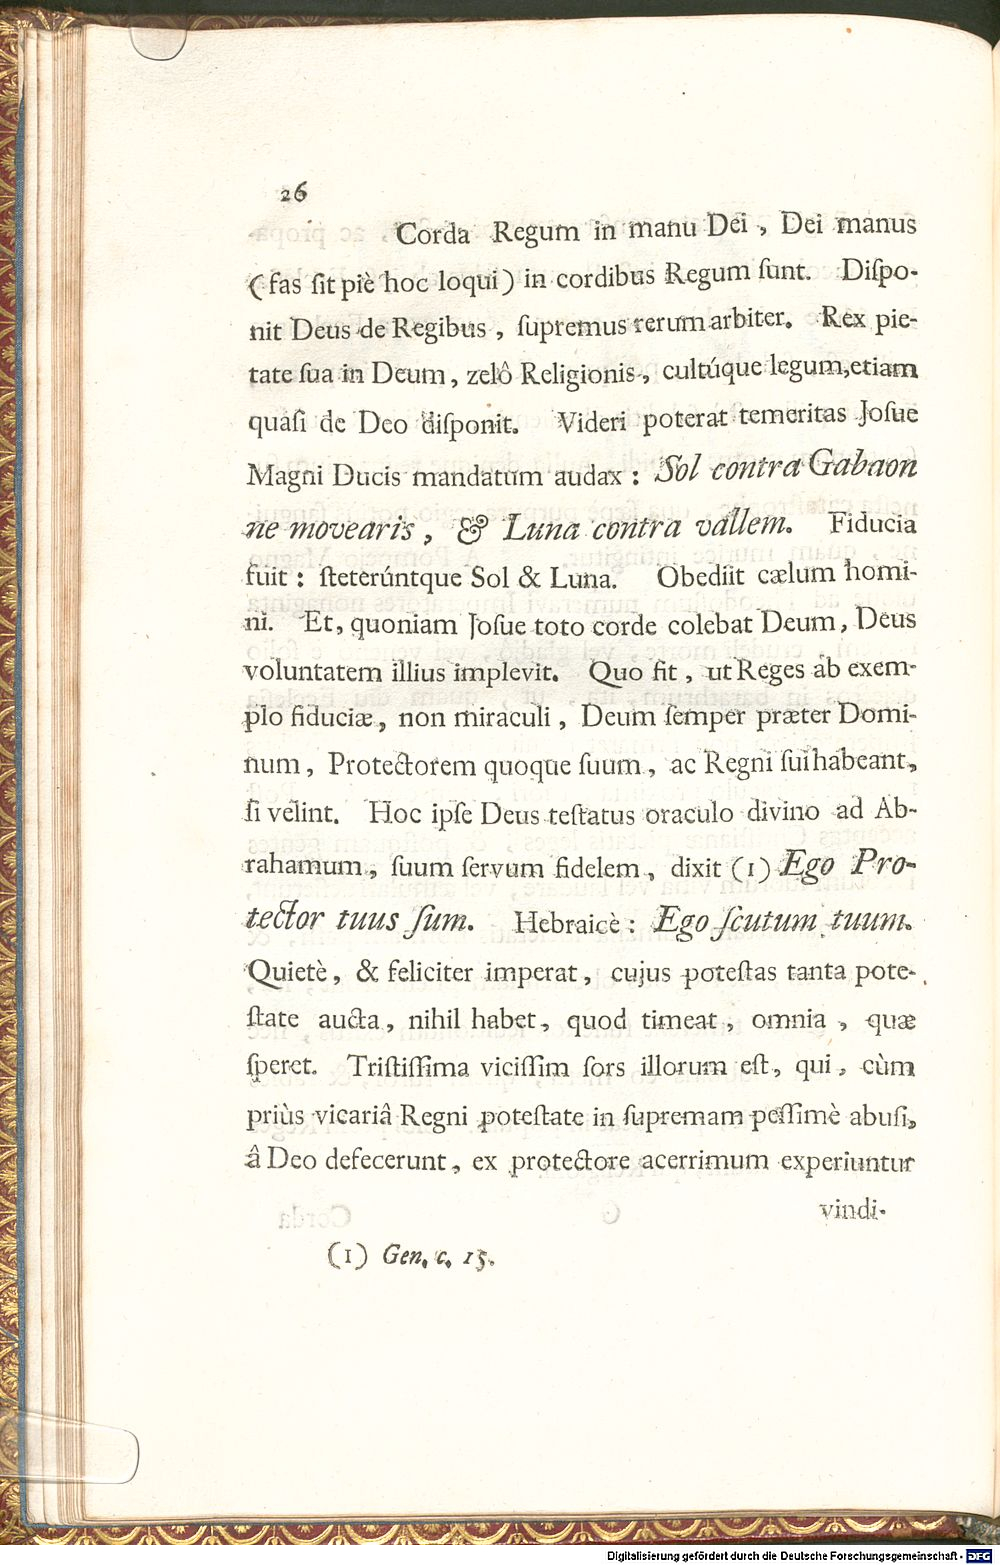 26
Corda Regum in manu Dei, Dei manus
(fas ſit piè hoc loqui) in cordibus Regum ſunt. Diſpo-
nit Deus de Regibus, ſupremus rerum arbiter. Rex pie-
tate ſua in Deum, zelô Religionis, cultúque legum, etiam
quaſi de Deo diſponit. Videri poterat temeritas Joſue
Magni Ducis mandatum audax: Sol contra Gabaon
ne movearis, & Luna contra vallem. Fiducia
fuit: ſteterúntque Sol & Luna. Obediit cælum homi-
ni. Et, quoniam Joſue toto corde colebat Deum, Deus
voluntatem illius implevit. Quo fit, ut Reges ab exem-
plo fiduciæ, non miraculi, Deum ſemper præter Domi-
num, Protectorem quoque ſuum, ac Regni ſui habeant,
ſi velint. Hoc ipſe Deus teſtatus oraculo divino ad Ab-
rahamum, ſuum ſervum fidelem, dixit (1) Ego Pro-
tector tuus ſum. Hebraicè: Ego ſcutum tuum.
Quietè, & feliciter imperat, cujus poteſtas tanta pote-
ſtate aucta, nihil habet, quod timeat, omnia, quæ
ſperet. Triſtiſſima viciſſim ſors illorum eſt, qui, cùm
priùs vicariâ Regni poteſtate in ſupremam peſſimè abuſi,
â Deo defecerunt, ex protectore acerrimum experiuntur
vindi-
(1) Gen. c. 15.
Digitalisierung gefördert durch die Deutsche Forschungsgemeinschaft - DFG